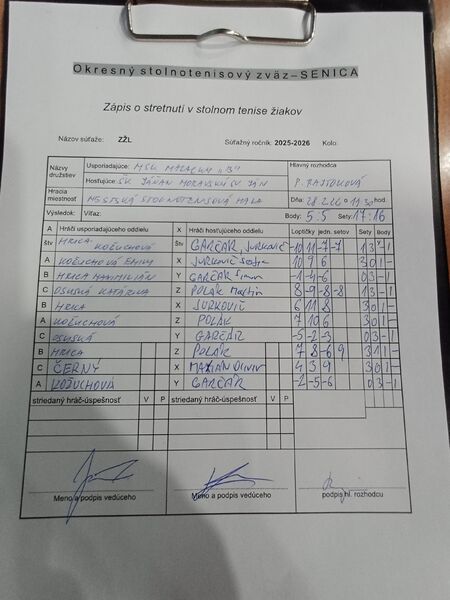 Okresný stolnotenisový zväz – SENICA
Zápis o stretnutí v stolnom tenise žiakov
Názov súťaže: ZŽL Súťažný ročník: 2025-2026 Kolo:
Názvy družstiev Usporiadajúce: MSK MALACKY "B" Hlavný rozhodca
Hosťujúce: ŠK JÁN MORAVSKÝ SV. JÁN P. RAJTOKOVÁ
Hracia miestnosť MESTSKÁ STOLNOTENISOVÁ HALA Dňa: 28.2.26 o 11.30 hod
Výsledok: Víťaz: Body: 5:5 Sety: 17:16
A Hráči usporiadajúceho oddielu X Hráči hosťujúceho oddielu Loptičky jedn. setov Sety Body
štv HRICA KOŽUCHOVÁ štv GARČÁR, JURKOVIČ -10 11 -7 -7 1 3 - 1
A KOŽUCHOVÁ EMILY X JURKOVIČ 10 9 6 3 0 1 -
B HRICA MAXIMILIÁN Y GARČÁR Simon -1 -4 -6 0 3 - 1
C OSUSKÁ KATARÍNA Z POLÁK Martin 8 -9 -8 -8 1 3 - 1
B HRICA X JURKOVIČ 6 11 8 3 0 1 -
A KOŽUCHOVÁ Z POLÁK 7 10 6 3 0 1 -
C OSUSKÁ Y GARČÁR -5 -2 -3 0 3 - 1
B HRICA Z POLÁK 7 8 -6 9 3 1 1 -
C ČERNÝ X MAXIAN OLIVER 4 3 9 3 0 1 -
A KOŽUCHOVÁ Y GARČÁR -2 -5 -6 0 3 - 1
striedaný hráč-úspešnosť V P striedaný hráč-úspešnosť V P
Meno a podpis vedúceho Meno a podpis vedúceho podpis hl. rozhodcu